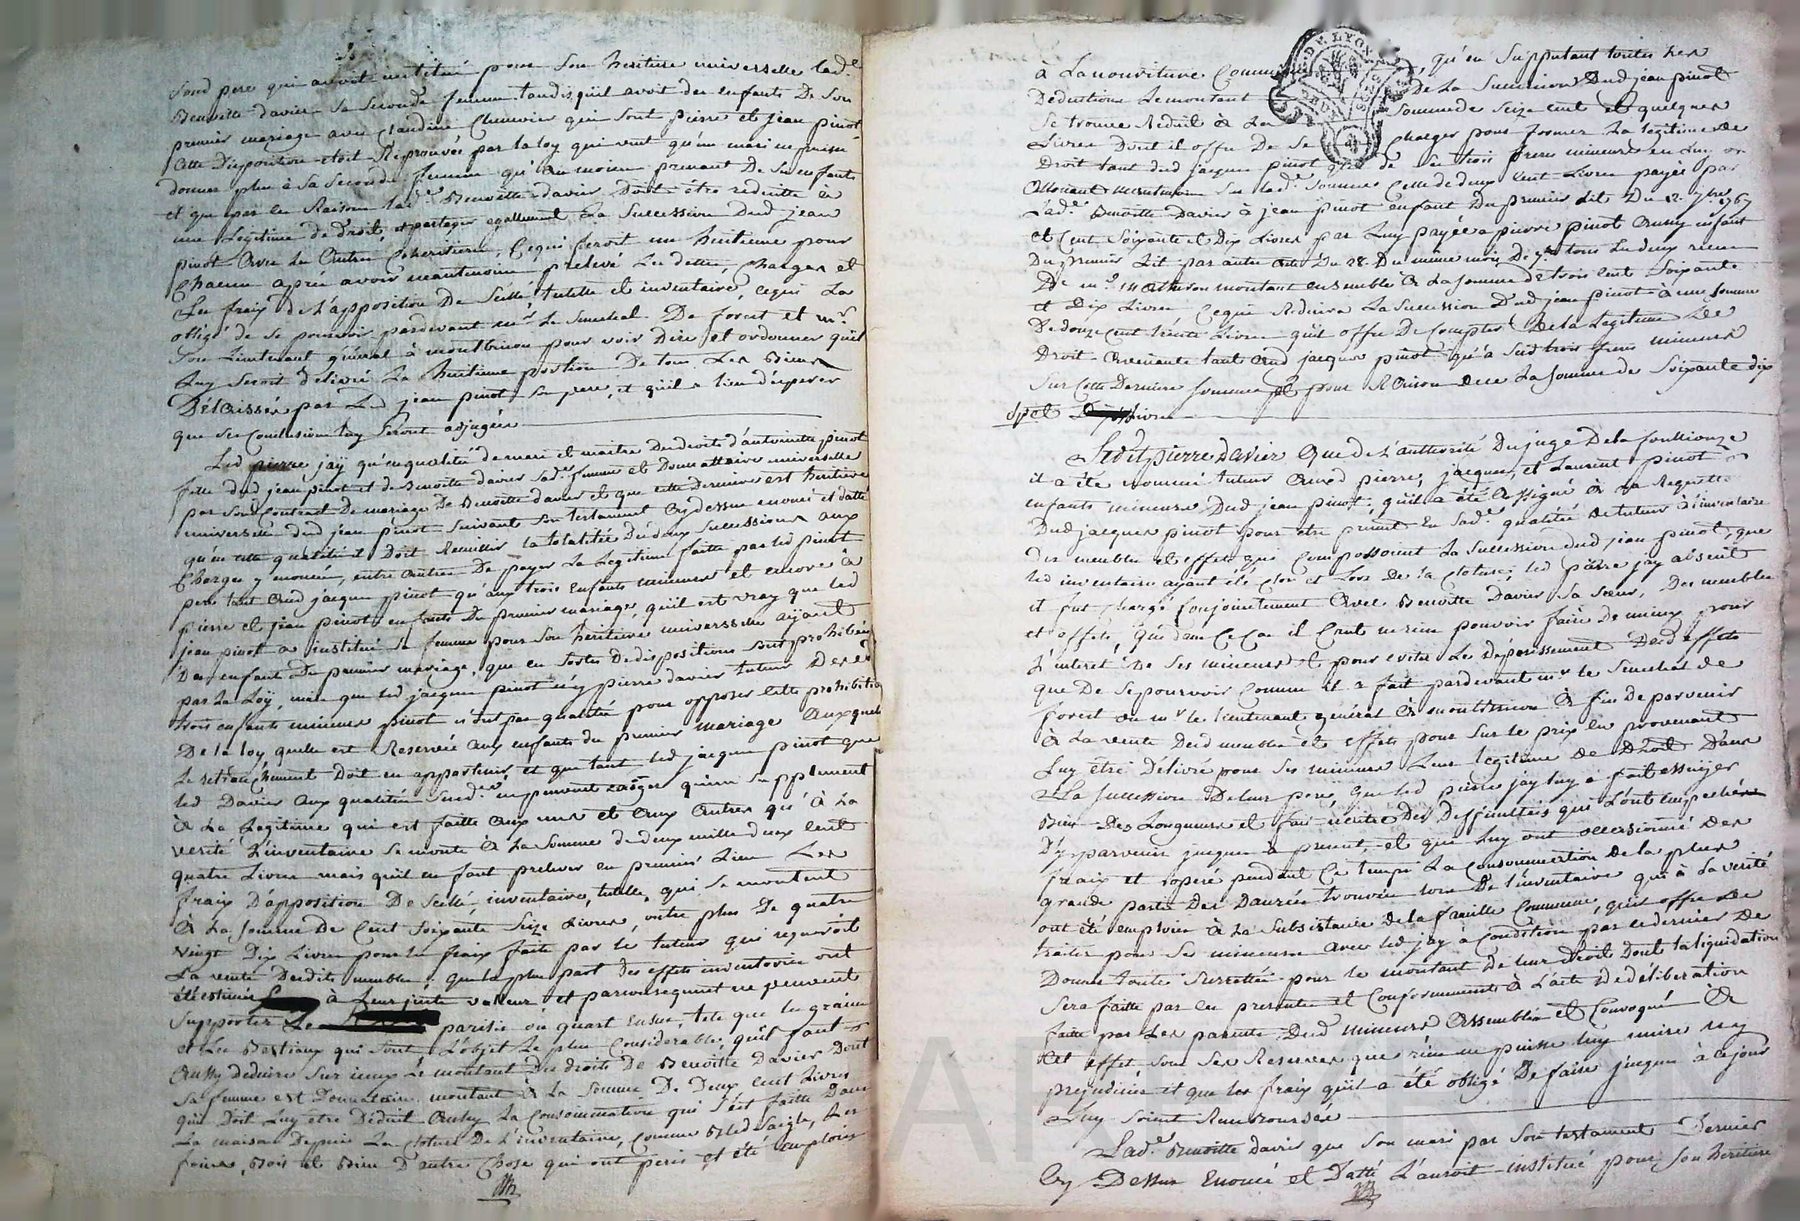 Sond pere qui avoit institué pour Son heritiere universelle lad.e
Benoitte davier Sa Seconde femme tandis quil avoit des enfants De Son
premier mariage avec Claudine Chenevier qui Sont pierre et jean pinot
Cette Disposition etoit Reprouvée par la loy qui veut qu'un mari ne puisse
donner plus à Sa Seconde femme qu'au moins prenant De Ses enfants
et que par les Raisons lad.e Benoitte davier Doit être reduitte à
une Legitime de droit, et partager egallement La Succession Dud jean
pinot Avec Les Autres Coheritiers, Cequi feroit un huitieme pour
Chacun aprés avoir neantmoins prelevé Les dettes, Charges et
Les fraix de L'apposition De Scellé, tutelle et inventaire, cequi La
obligé de Se pourvoir pardevant mr. Le Senechal De forest et mr.
Son Lieutenant general à montbrison pour voir Dire et ordonner quil
Luy Seroit délivré La huitieme portion De tous Les Biens
Délaissés par Led jean pinot Son pere, et quil a lieu d'esperer
que Ses Conclusions luy Seront adjugées
Led pierre jaÿ qu'en qualité de mari et maitre des droits d'antoinette pinot
fille dud jean pinot et de Benoitte davier Sad. femme et Donnattaire universelle
par Sond Contrat De mariage De Benoitte davier et que cette Derniere est heritiere
universelle dud jean pinot Suivant Son testament Cydessus enoncé et datté
qu'en cette qualité il Doit Recuillir la totalité Desdeux Successions aux
Charges y enoncées, entre autres De payer La Legitime faitte par led pinot
pere tant aud jacques pinot qu'aux trois Enfants mineurs et encore à
pierre et jean pinot enfants du premier mariage, quil est vray que led
jean pinot a institué Sa femme pour Son heritiere universelle aÿant
Des enfant Du premier mariage, que ces Sortes De dispositions Sont prohibées
par La Loÿ, mais que led jacques pinot n'y pierre davier tuteur Desd
trois enfants mineurs pinot n'ont pas qualité pour opposer cette prohibition
De la loy quelle est Reservée aux enfants du premier mariage auxquels
Le retranchement Doit en appartenir, et que tant led jacques pinot que
led Davier aux qualités Susd. ne peuvent exiger qu'un supplement
à La Legitime qui est faitte aux uns et aux autres qu'à La
verité L'inventaire Se monte à La Somme de deux mille deux cent
quatre Livres mais quil en faut prelever en premier Lieu Les
fraix D'apposition De Scellé, inventaire, tutelle, qui Se montent
à La Somme De Cent Soixante Seize Livres, outre plus De quatre
vingt Dix Livres pour les fraix faits par le tuteur qui requeroit
La vente Desdits meubles, que la plus part des effets inventoriés ont
été estimés à Leur juste valeur et par consequent ne peuvent
Supporter Le parisis ou quart Ensus, tels que les grains
et Les Bestiaux qui Sont L'objet Le plus Considerable, qu'il faut
Aussy deduire Sur iceux Le montant des droits De Benoitte Davier Dont
Sa femme est Donnataire montant à La Somme De Deux Cent Livres
qui Doit Luy etre Deduit Aussy La Consommation qui S'est faitte Dans
La maison Depuis La cloture De L'inventaire, Comme Bled Seigle, Les
foins, Bois et Bien D'autre Chose qui ont peris et été employés
à La nouriture Commune, qu'en Supputant toutes Les
Deductions Le montant De La Succession Dud jean pinot
Se trouve Réduit à La Somme de Seize Cent et quelques
Livres Dont il offre De Se charger pour former La legitime de
Droit tant dud jacques pinot que de Ses trois freres mineurs en Luy
allouant neantmoins Sur lad.e Somme Celle de deux Cent Livres payée par
Lad.e Benoitte Davier à jean pinot enfant Du premier Lit Du 12. 7bre 1767
et Cent Soixante et Dix Livres par Luy payée a pierre pinot Aussy enfant
Du premier Lit par autre acte Du 28. Du meme mois De 7bre tous Les deux reçus
De me. mathevon montant ensemble à La Somme de trois Cent Soixante
et Dix Livres Cequi Reduira La Succession Dud jean pinot à une Somme
De douze Cent trente Livres quil offre De Compter De la Legitime De
Droit Revenante tant aud jacques pinot qu'à Sesd trois freres mineurs
Sur Cette Derniere Somme et pour Raison dece La Somme de Soixante dix
Sept Livres
Ledit pierre davier Que de L'authorité Du juge De la fouillouze
il a été nommé tuteur auxd pierre, jacques, et Laurent pinot
enfants mineurs Dud jean pinot, qu'il a été Assigné à La Requette
Dud jacques pinot pour etre present En Sad.e qualité de tuteur à L'inventaire
Des meubles et effets qui Composoient La Succession dud jean pinot, que
led inventaire ayant été clos et Lors De La Cloture, led pierre jay absent
il fut chargé Conjointement Avec Benoitte Davier Sa Sœur, Des meubles
et effets, que dans Ce Cas il Crut ne rien pouvoir faire de mieux pour
L'interet De Ses mineurs et pour eviter Le Deperissement Desd effets
que De Se pourvoir Comme il a fait pardevant mr le Senechal de
forest ou mr le lieutenant general à montbrison à fin de parvenir
à La vente Desd meubles et effets pour Sur le prix en provenant
Luy être Délivré pour Ses mineurs Leur legitime de Droit Dans
La Succession De leur pere, que led pierre jay luy a fait essuyer
Bien Des Longueurs et fait naitre Des Difficultés qui L'ont empeché
D'y parvenir jusques à present, et que luy ont occasionné Des
fraix et operé pendant Ce temps La Consommation de la plus
grande partie Des Danrées trouvées Lors De L'inventaire qui à la verité
ont été employées à La Subsistance de la famille Commune, qu'il offre De
traiter pour Ses mineurs avec led jay à Condition par ledernier De
Donner toute Surettée pour le montant de leur droit Dont la liquidation
Sera faitte par les presentes et Conformement à L'acte De deliberation
faitte par Les parents Desd mineurs Assemblés et Convoqués à
Cet effet Sous Ses Reserves que rien ne puisse luy nuire ny
prejudicier et que les fraix qu'il a été obligé De faire jusques à ce jour
Luy Soient Remboursés
Lad.e Benoitte davier que Son mari par Son testament Dernier
Cy Dessus Enoncé et Datté L'auroit institué pour Son heritiere
DE LYON